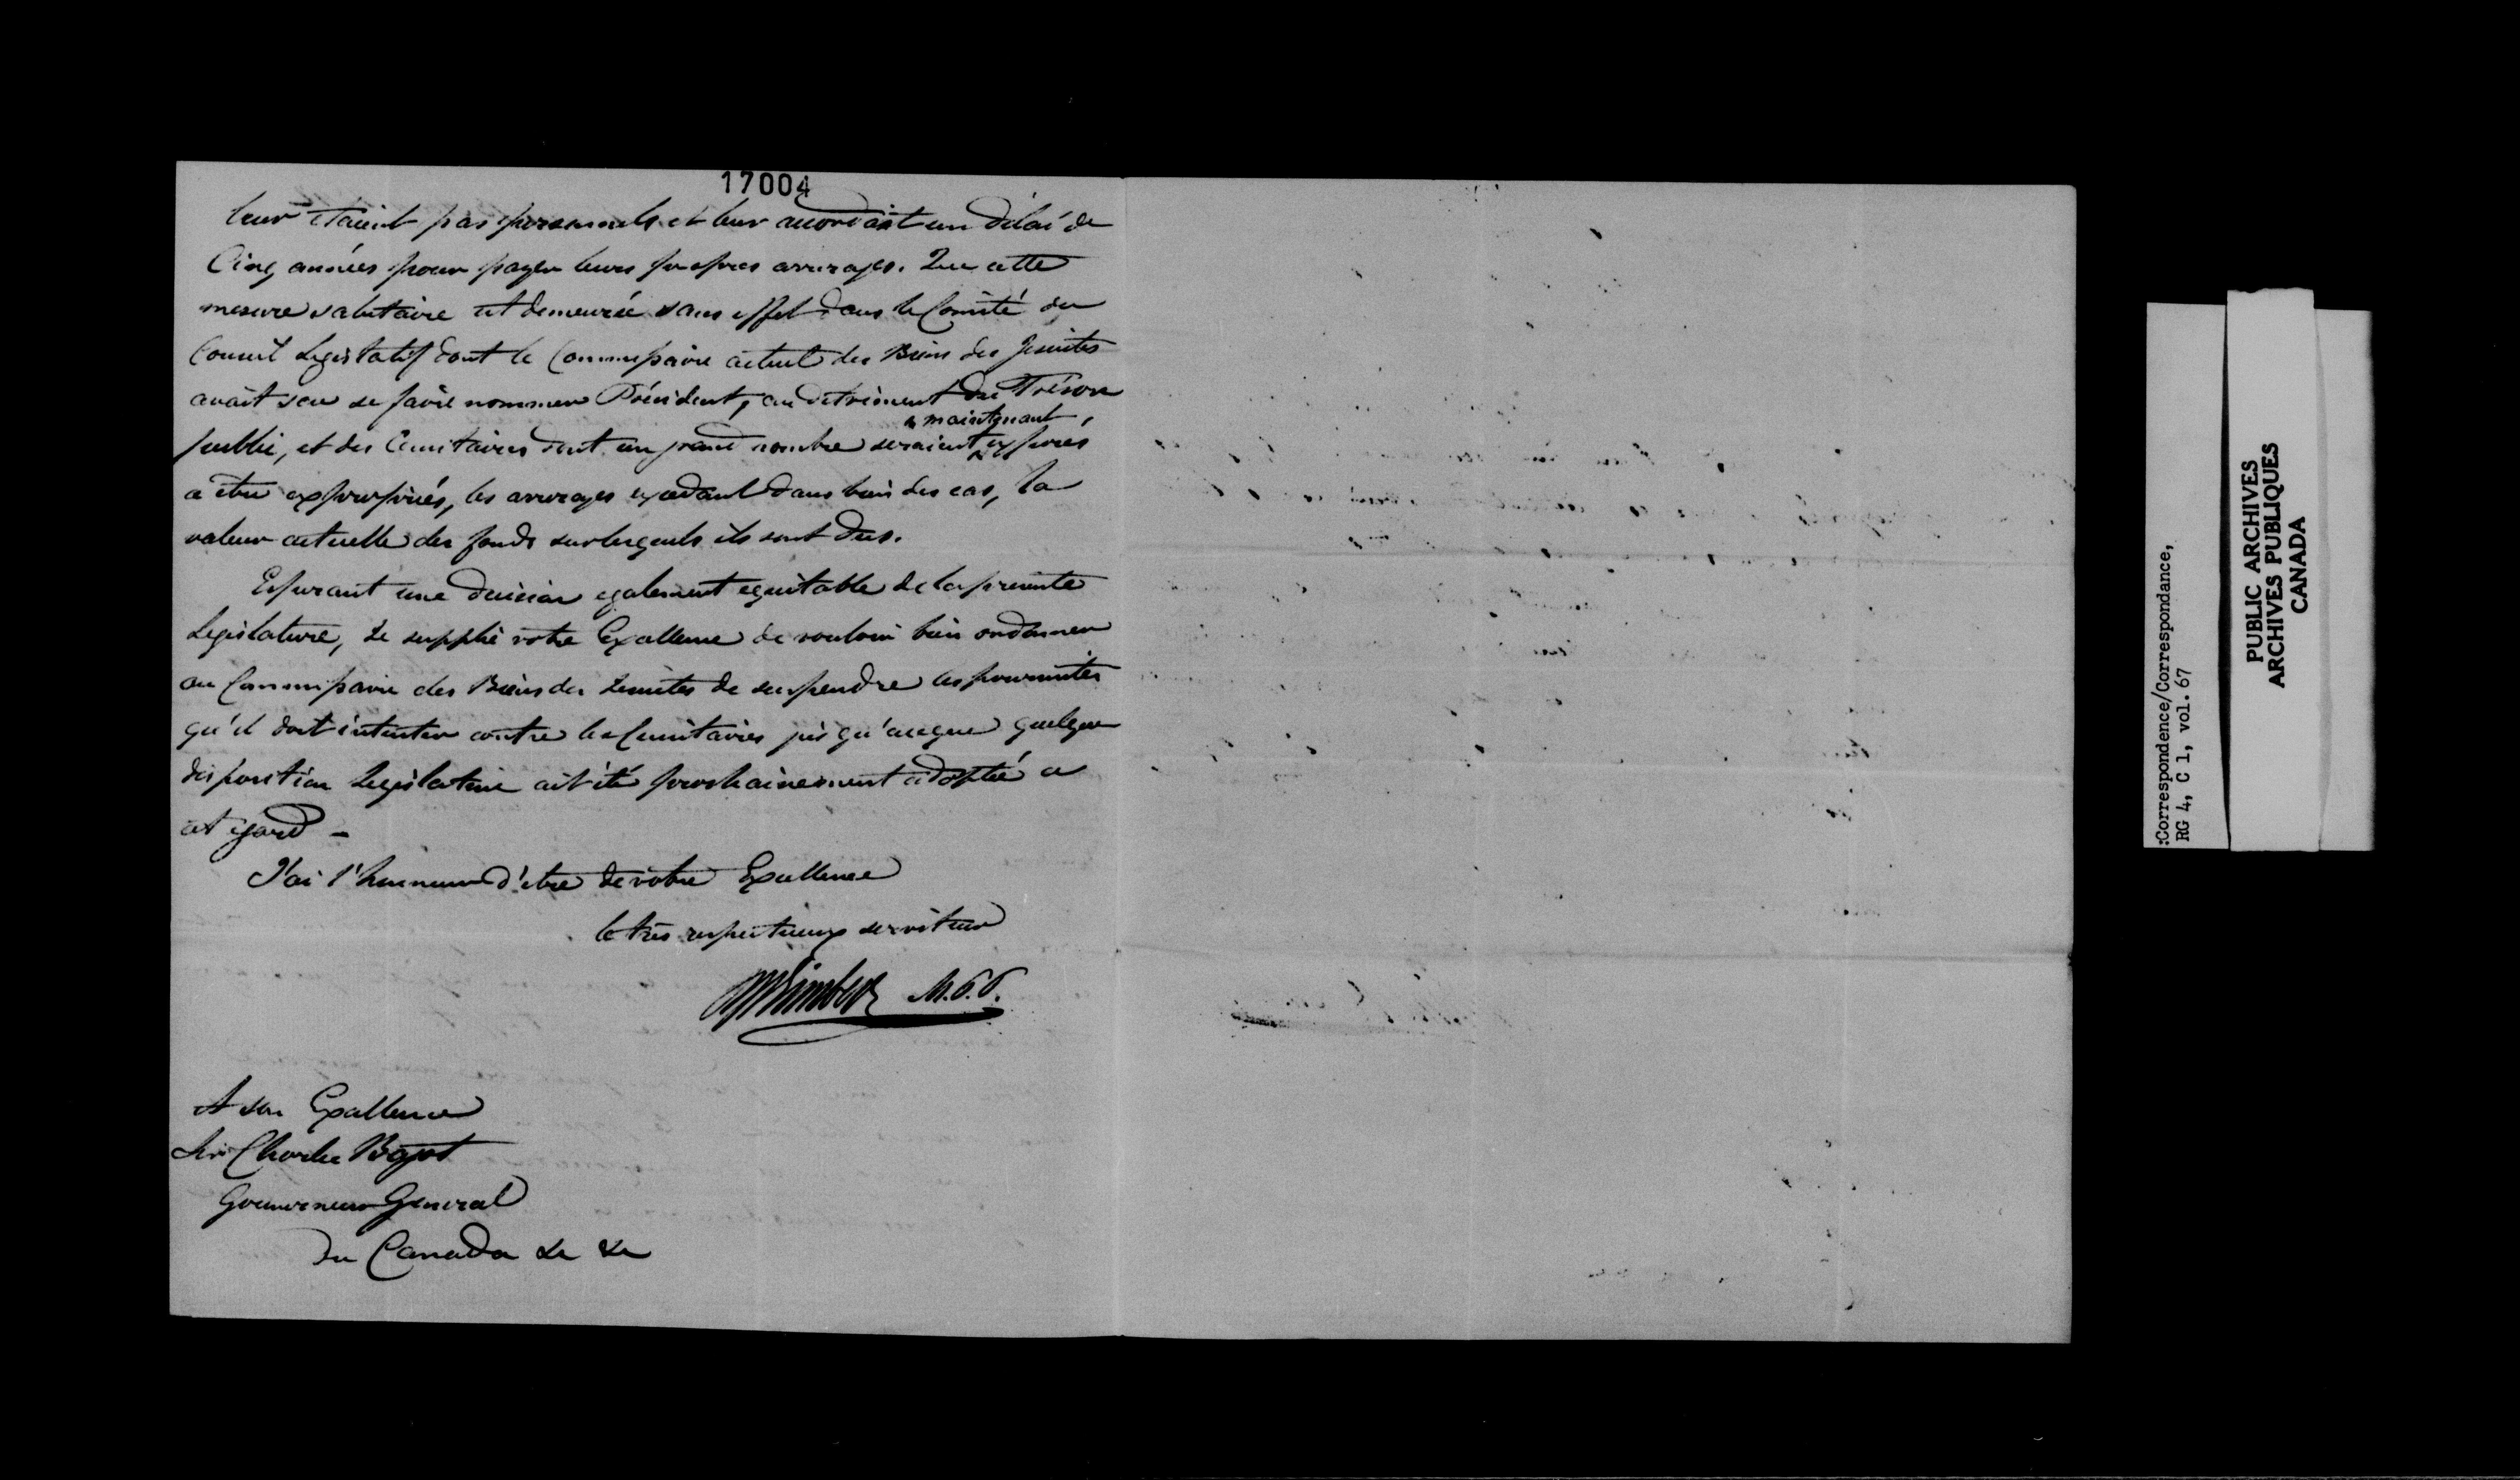 17004
leur etaient pas personnels et leur accordait un délai de
Cinq années pour payer leurs propres arrerages. Que cette
mesure salutaire est demeurée sans effet dans le Comité du
Conseil Legislatif dont le Commissaire actuel des Biens des Jesuites
avait scu se faire nommer Président, au detriment du Trésor
maintenant
public, et des Censitaires dont un grand nombre seraient exposés
a être expropriés, les arrerages exedant dans bien des cas, la
valeur actuelle des fonds surlesquels ils sont dus.
Esperant une decision egalement equitable de la presente
Legislature, Je supplie votre Excellence de vouloir bien ordonner
au Commissaire des Biens des Jesuites de suspendre les poursuites
qu'il doit intenter contre les Censitaires jusqu'aceque quelque
disposition Legislative ait été prochainement adoptée a
cet egard -
J'ai l'honneur d'etre de votre Excellence
le très respectueux serviteur
M.P.P.
A son Excellence
Sir Charles Bagot
Gouverneur General
du Canada &c &c
:Correspondence/Correspondance,
RG 4, C 1, vol. 67
PUBLIC ARCHIVES
ARCHIVES PUBLIQUES
CANADA